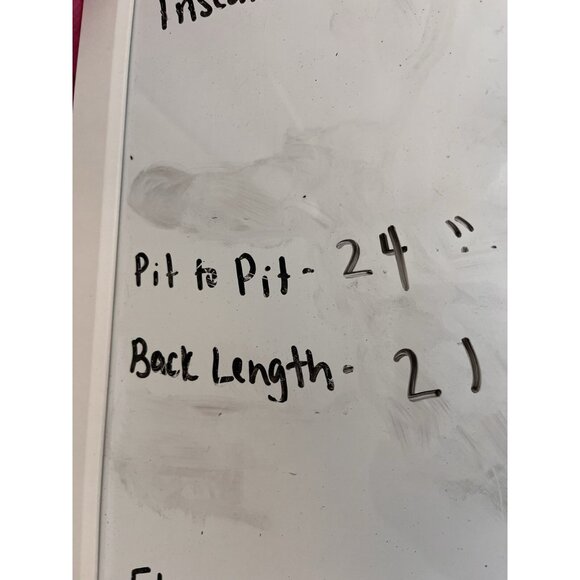 Pit to Pit - 24"
Back Length - 21